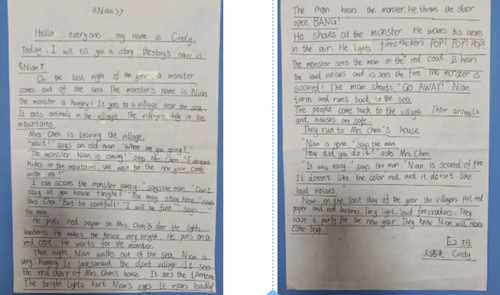 《Nian》
Hello, everyone my name is Cindy.
Today, I will tell you a story. The story's name is
《Nian》.
On the last night of the year a monster
comes out of the sea. The monster's name is Nian
the monster is hungry! It goes to a village near the sea.
It eats animals in the village. The villagers hide in the
mountains.
Mrs Chen is leaving the village.
"Wait!" says an old man. "Where are you going?"
"The monster Nian is coming!" says Mrs Chen. "Everyone
hides in the mountains. We wait for the new year. Come
with me!"
I can scare the monster away." says the man. "Can I
stay at you house tonight?" You may stay here" says
Mrs Chen "But be careful!" "I will be fine" says
the man.
He puts red paper on Mrs Chen's door. He lights
lanterns. He makes the house very bright. He puts on a
red coat. He waits for the monster.
That night, Nian walks out of the sea. Nian is
very hungry. It goes around the quiet village. It sees
the red door of Mrs Chen's house. It sees the lanterns.
The bright lights hurt Nian's eyes. It roars loudly!
The man hears the monster. He throws the door
open. BANG!
He shouts at the monster. He waves his arms
in the air. He lights firecrackers. POP! POP! POP!
The monster sees the man in the red coat. It hears
the loud noises and is sees the fire. The monster is
scared! The man shouts "GO AWAY!" Nian
turns and runs back to the sea.
The people come back to the village. Their animals
and houses are safe.
They run to Mrs Chen's house.
"Nian is gone" says the man.
"How did you do it?" asks Mrs Chen.
"It was easy" says the man. "Nian is scared of fire
It doesn't like the color red, and it doesn't like
loud noises.
Now, on the last day of the year the villagers put red
paper and red lanterns. They light loud firecrackers. They
have a party for the new year. They know Nian will never
come back.
E2班
Cindy